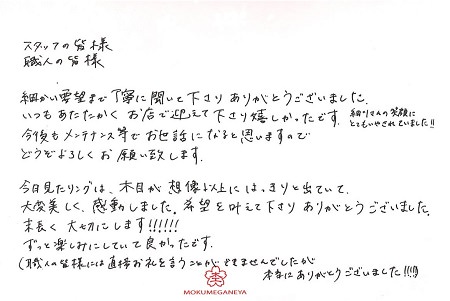 スタッフの皆様
職人の皆様
細かい要望まで丁寧に聞いて下さり ありがとうございました。
いつもあたたかく お店で迎えて下さり嬉しかったです。
細川さんの笑顔に
とてもいやされていました!!
今後もメンテナンス等でお世話になると思いますので
どうぞよろしくお願い致します。
今日見たリングは、木目が想像以上にはっきりと出ていて、
大変美しく、感動しました。希望を叶えて下さり ありがとうございました。
末長く大切にします!!!!!!
ずっと楽しみにしていて良かったです。
(職人の皆様には直接お礼を言うことができませんでしたが
本当にありがとうございました!!!!)
MOKUMEGANEYA